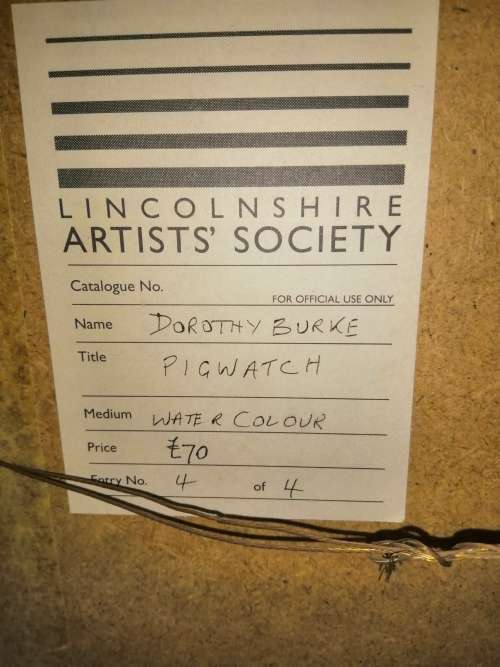 LINCOLNSHIRE
ARTISTS' SOCIETY
Catalogue No.
FOR OFFICIAL USE ONLY
Name DOROTHY BURKE
Title PIGWATCH
Medium WATER COLOUR
Price £70
Entry No. 4 of 4